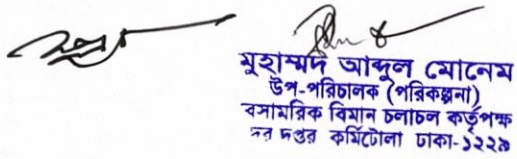 মুহাম্মদ আব্দুল মোনেম
উপ-পরিচালক (পরিকল্পনা)
বসামরিক বিমান চলাচল কর্তৃপক্ষ
দর দপ্তর কুর্মিটোলা ঢাকা-১২২৯